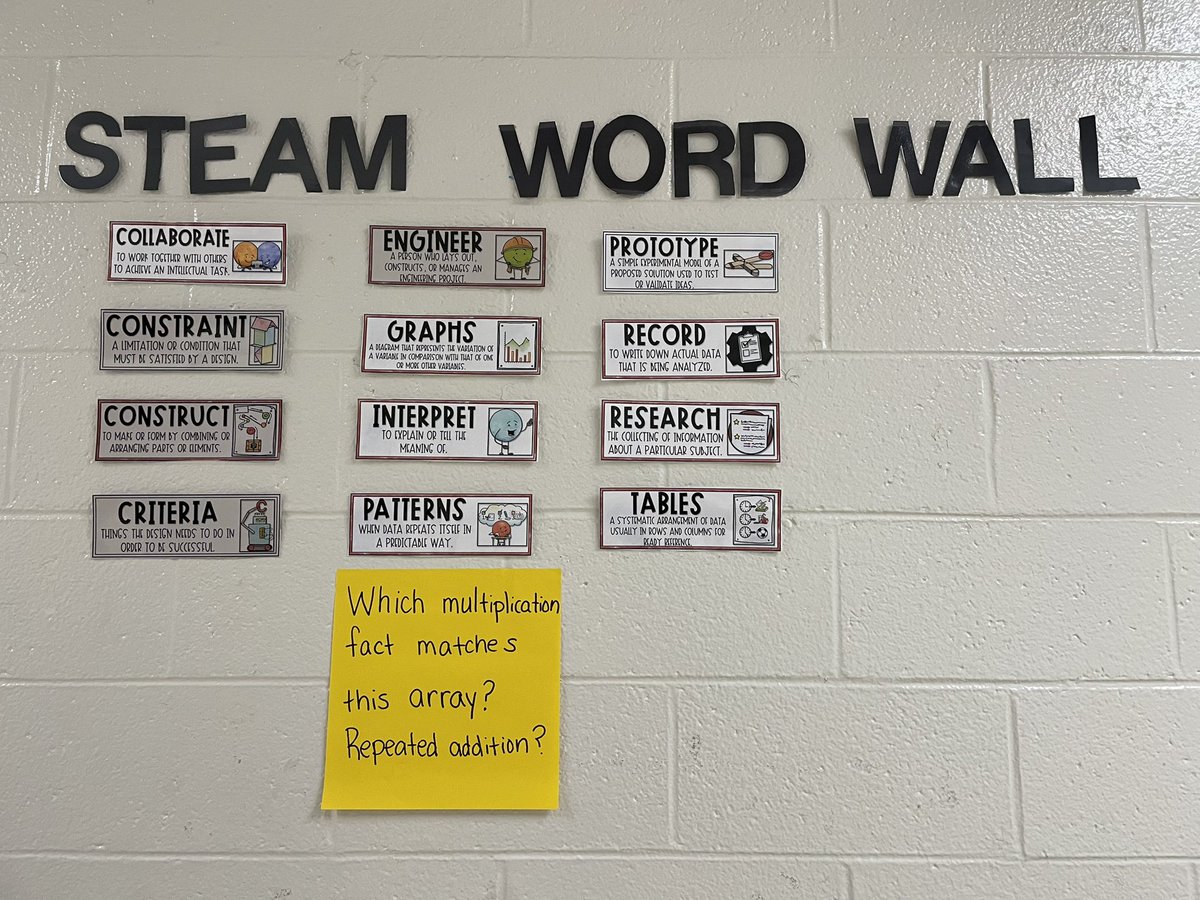 STEAM WORD WALL
COLLABORATE
TO WORK TOGETHER WITH OTHERS
TO ACHIEVE AN INTELLECTUAL TASK.
CONSTRAINT
A LIMITATION OR CONDITION THAT
MUST BE SATISFIED BY A DESIGN.
CONSTRUCT
TO MAKE OR FORM BY COMBINING OR
ARRANGING PARTS OR ELEMENTS.
CRITERIA
THINGS THE DESIGN NEEDS TO DO IN
ORDER TO BE SUCCESSFUL.
ENGINEER
A PERSON WHO LAYS OUT,
CONSTRUCTS, OR MANAGES AN
ENGINEERING PROJECT.
GRAPHS
A DIAGRAM THAT REPRESENTS THE VARIATION OF
A VARIABLE IN COMPARISON WITH THAT OF ONE
OR MORE OTHER VARIABLES.
INTERPRET
TO EXPLAIN OR TELL THE
MEANING OF.
PATTERNS
WHEN DATA REPEATS ITSELF IN
A PREDICTABLE WAY.
PROTOTYPE
A SIMPLE EXPERIMENTAL MODEL OF A
PROPOSED SOLUTION USED TO TEST
OR VALIDATE IDEAS.
RECORD
TO WRITE DOWN ACTUAL DATA
THAT IS BEING ANALYZED.
RESEARCH
THE COLLECTING OF INFORMATION
ABOUT A PARTICULAR SUBJECT.
TABLES
A SYSTEMATIC ARRANGEMENT OF DATA
USUALLY IN ROWS AND COLUMNS FOR
READY REFERENCE.
Which multiplication
fact matches
this array?
Repeated addition?